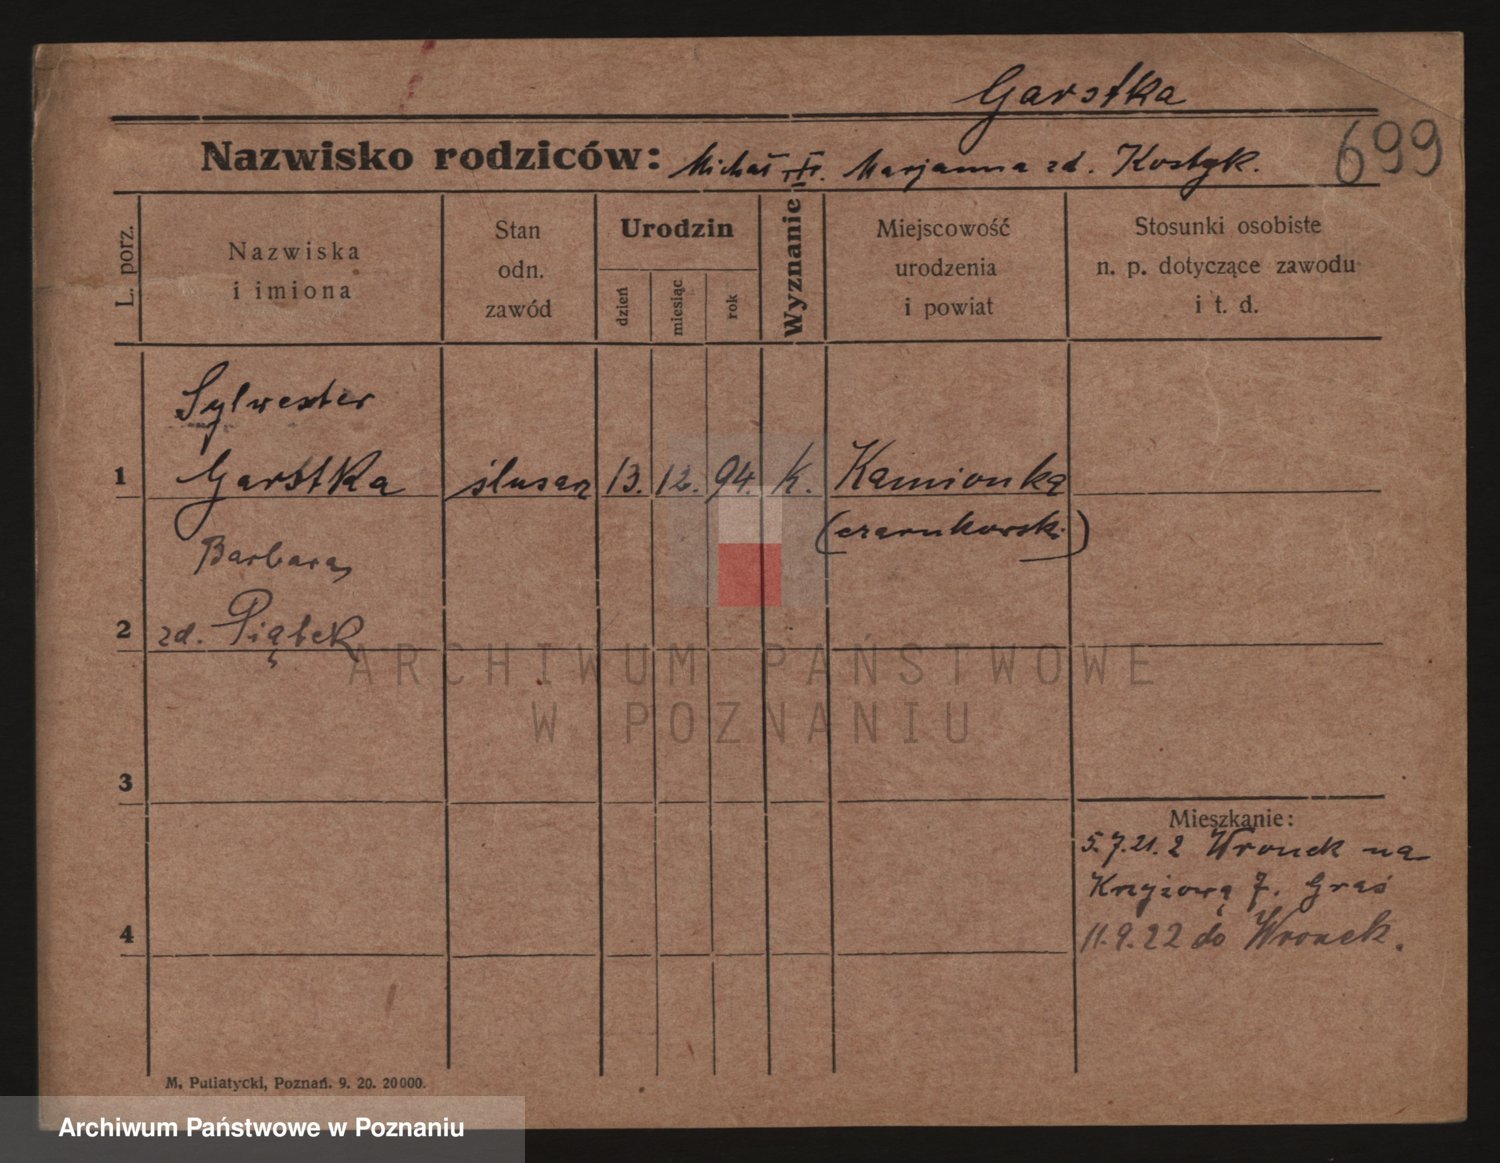 Garstka
Nazwisko rodziców: Michał Marjanna zd. Kostyk.
699
L. porz.
Nazwiska i imiona
Stan odn. zawód
Urodzin
dzień
miesiąc
rok
Wyznanie
Miejscowość urodzenia i powiat
Stosunki osobiste n. p. dotyczące zawodu i t. d.
Sylwester
1 Garstka ślusarz 13. 12. 94. k. Kamionka
(czarnkowski)
Barbara
2 zd. Piątek
ARCHIWUM PAŃSTWOWE
W POZNANIU
3
Mieszkanie:
5.7.21. z Wronek na
Krzyżową 7. Graś
4 11.9.22 do Wronek.
M. Putiatycki, Poznań. 9. 20. 20000.
Archiwum Państwowe w Poznaniu